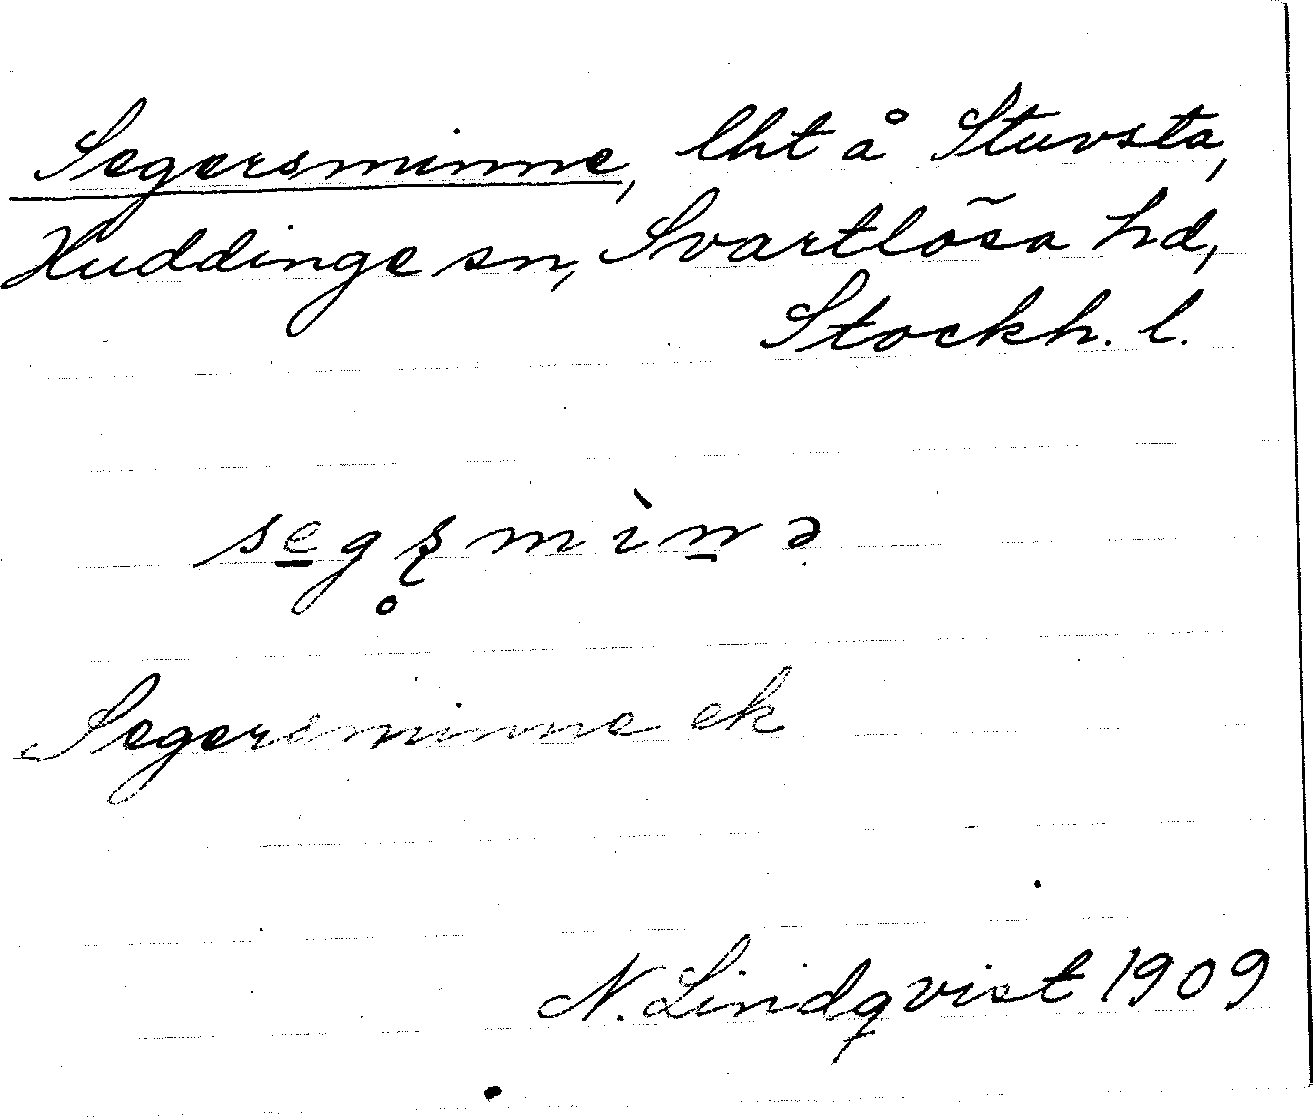 Segersminne, lht å Stuvsta,
Huddinge sn, Svartlösa hd,
Stockh. l.
segʂ̥mìnə
Segersminne ek
N. Lindqvist 1909